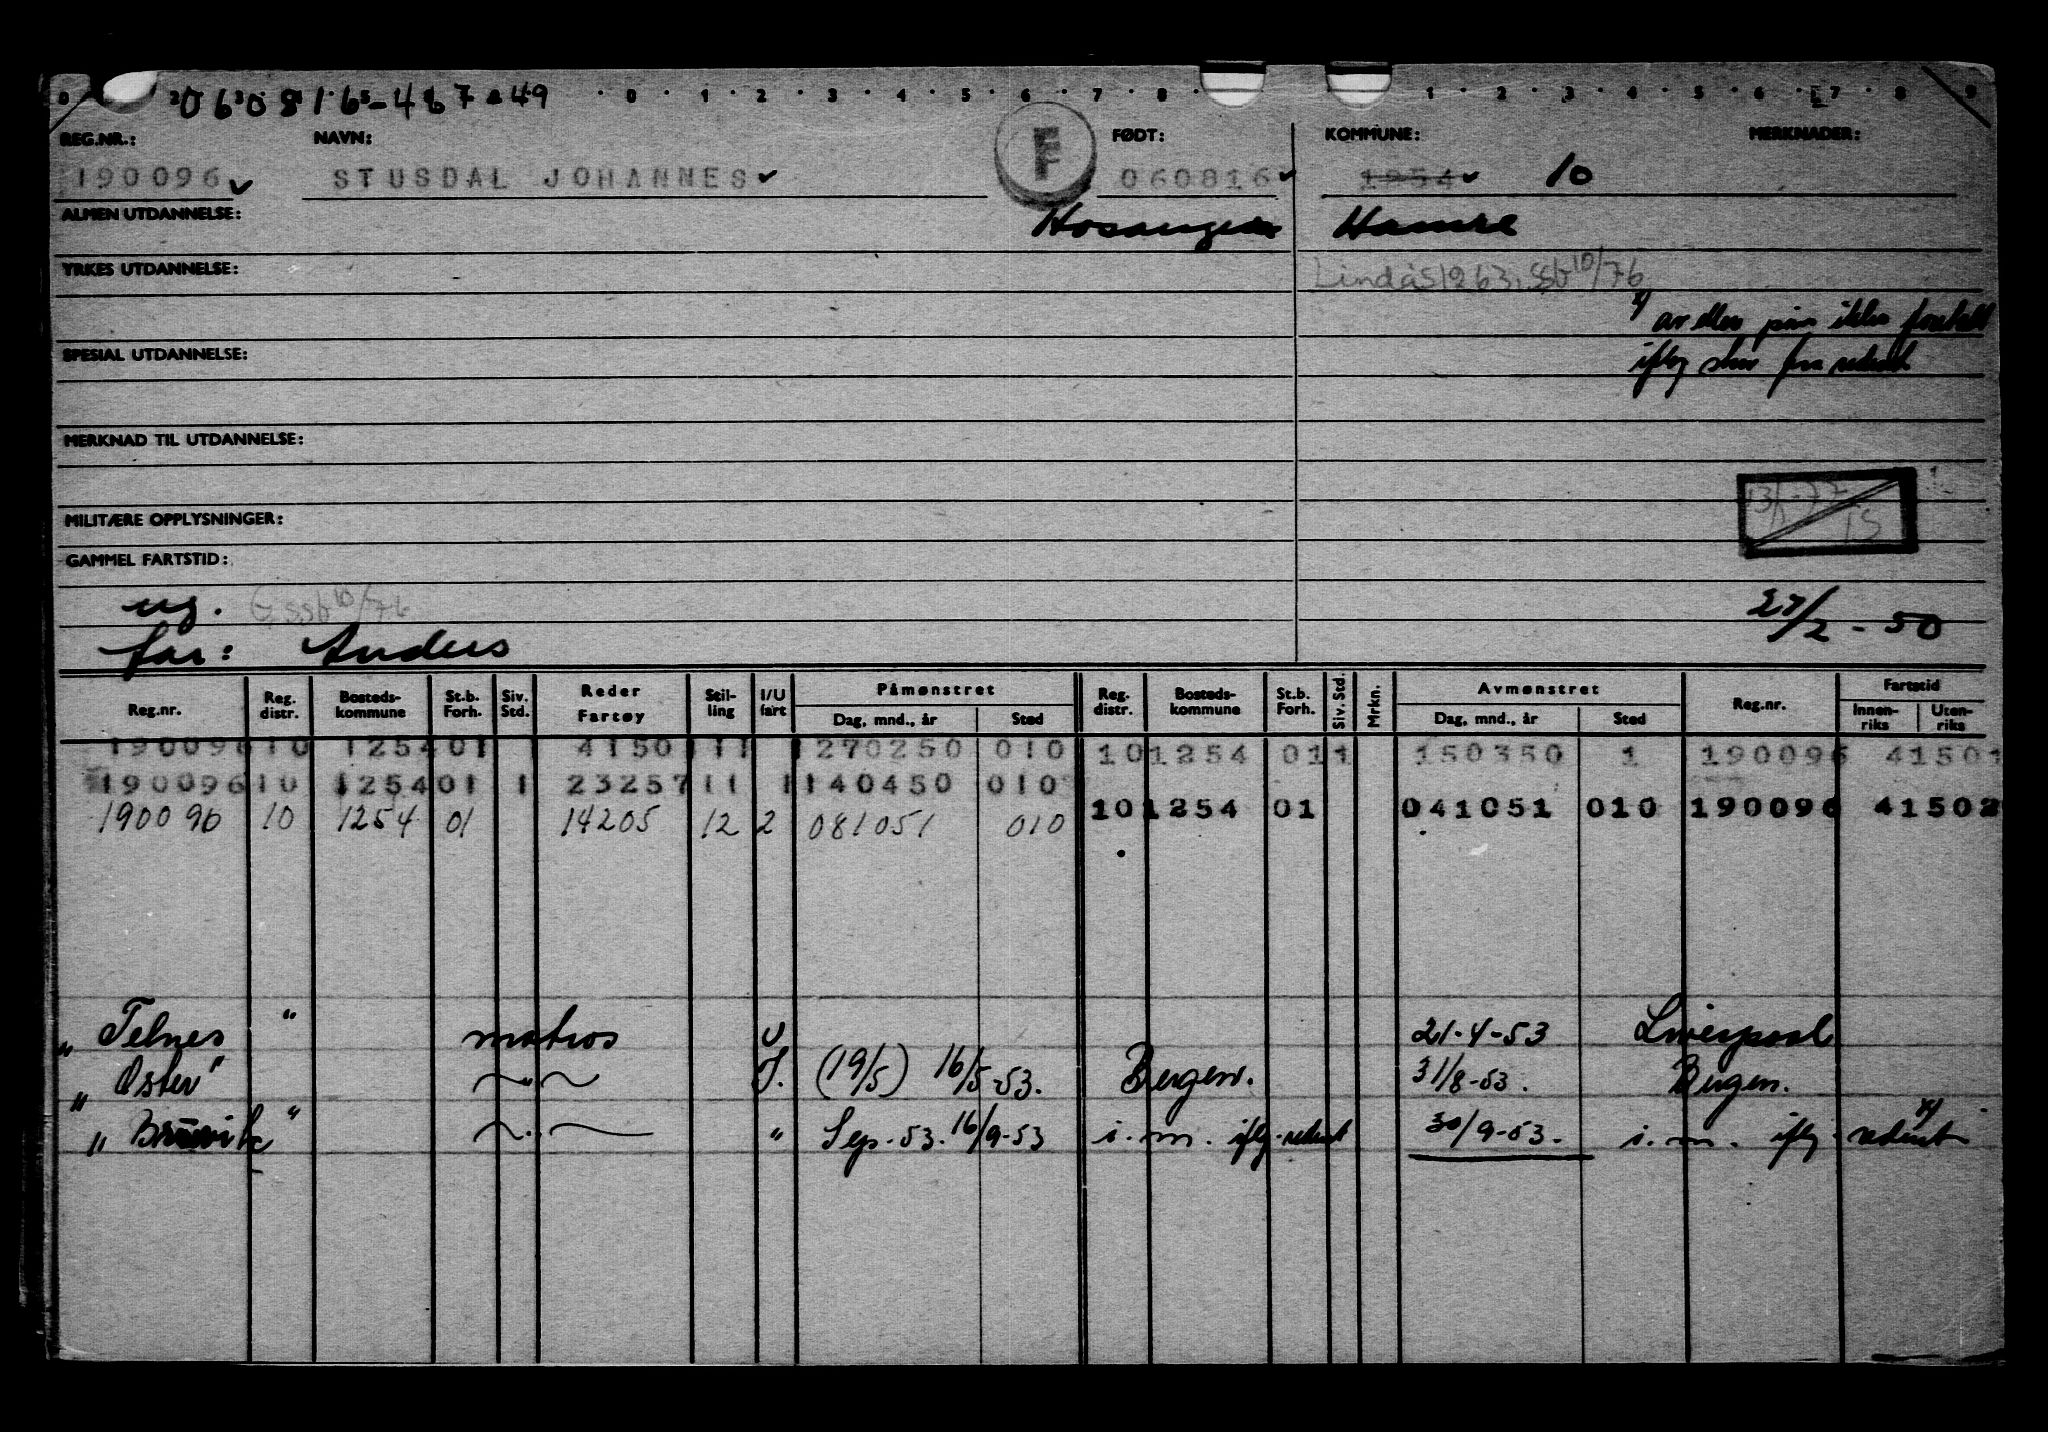 060816-46749
0 1 2 3 4 5 6 7 8 1 2 3 4 5 6 7 8 9
REG.NR.: NAVN: F FØDT: KOMMUNE: MERKNADER:
190096 STUSDAL JOHANNES 060816 1254 10
ALMEN UTDANNELSE: Hosanger Hamre
YRKES UTDANNELSE: Lindås 1263, ssb 10/76
x) av eller påm ikke foretatt
SPESIAL UTDANNELSE: iflg skriv fra rederiet
MERKNAD TIL UTDANNELSE:
MILITÆRE OPPLYSNINGER:
GAMMEL FARTSTID:
ug. G ssb 10/76 27/2-50
far: Anders
Reg.nr. Reg. distr. Bosteds-kommune St.b. Forh. Siv. Std. Reder Fartøy Stil-ling I/U fart Påmønstret Dag, mnd., år Sted Reg. distr. Bosteds-kommune St.b. Forh. Siv. Std. Mrkn. Avmønstret Dag, mnd., år Sted Reg.nr. Fartstid Innen-riks Uten-riks
190096 10 1254 01 1 4150 11 1 270250 010 10 1254 01 1 150350 1 190096 41501
190096 10 1254 01 1 23257 11 1 140450 010
10 1254 01 041051 010 190096 41502
190096 10 1254 01 14205 12 2 081051 010
"Telnes" matros U 21-4-53 Liverpool
"Oster" ~"~ I. (19/5) 16/5-53. Bergen. 31/8-53. Bergen.
"Bruvik" ~"~ " Sep. 53. 16/9-53 i.m. iflg. rederiet 30/9-53. i.m. iflg. rederiet x)